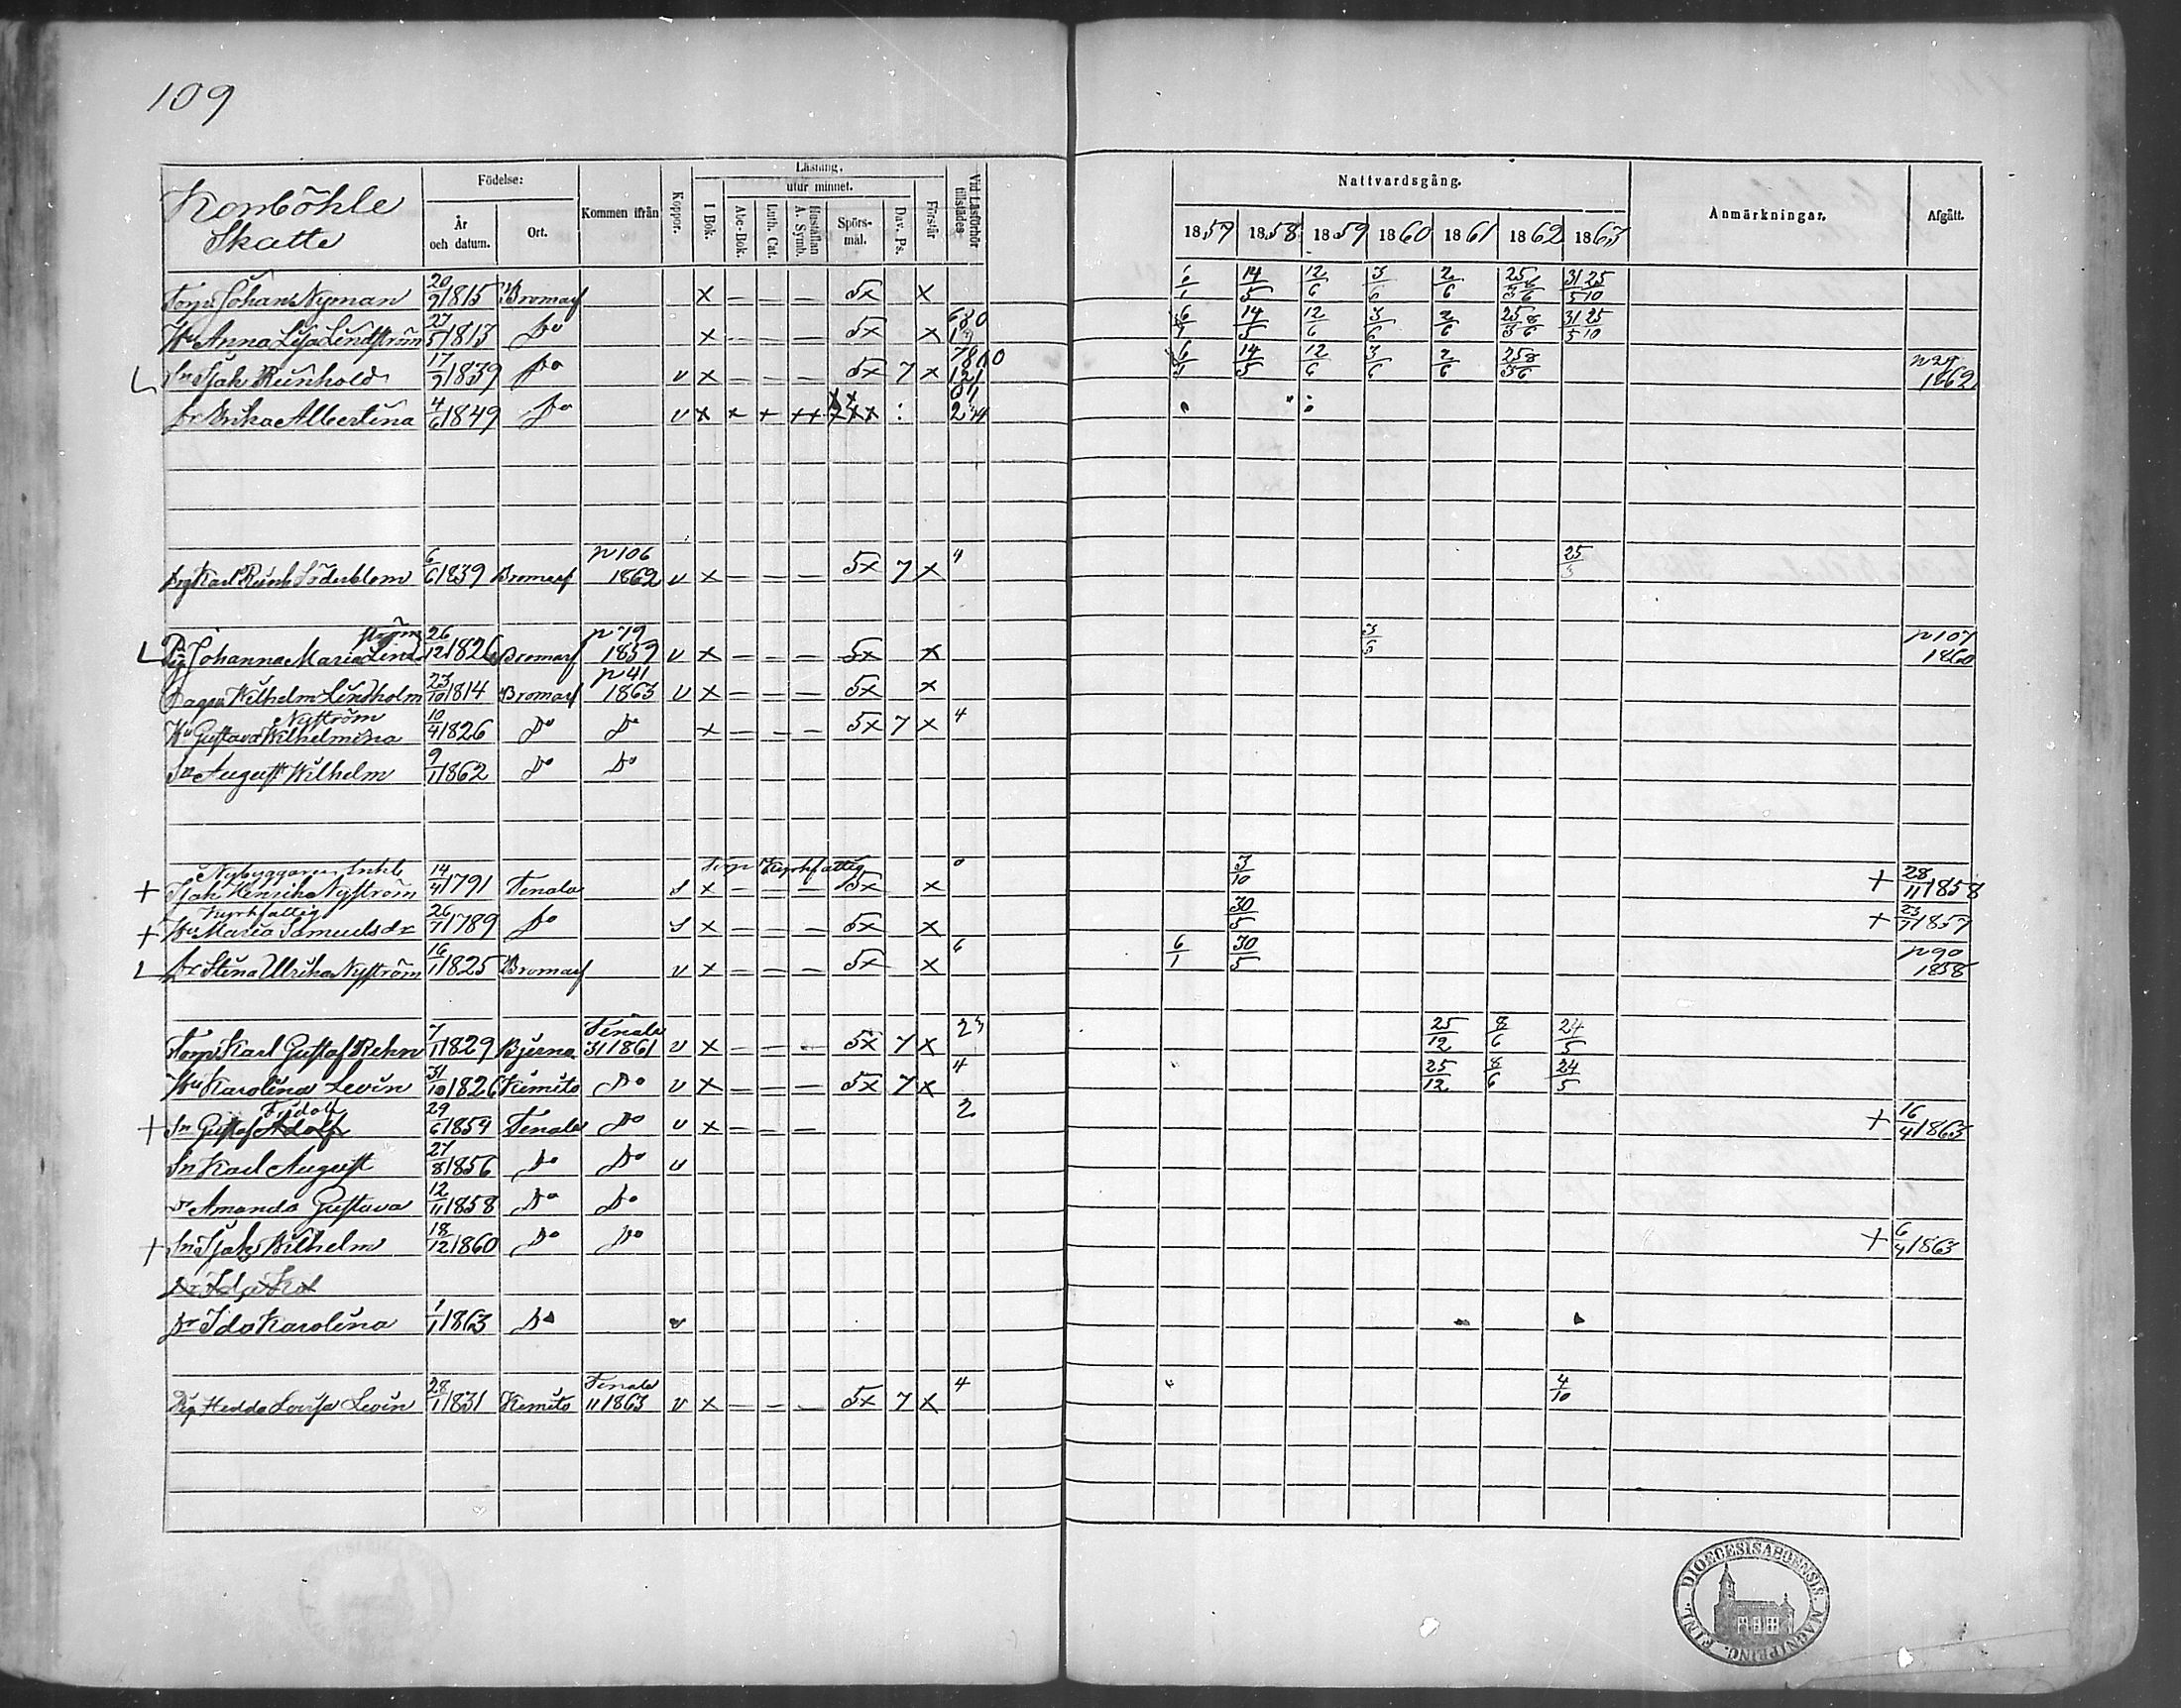 109
Skatte
Födelse:
År och datum.
Ort.
Kommen ifrån
Koppor.
Läsning.
I Bok.
utur minnet.
Abc-Bok.
Luth. Cat.
Hustaflan A. Symb.
Spörs-mål.
Dav. Ps.
Förstår
Vid Läsförhör tillstädes
Nattvardsgång.
1857 1858 1859 1860 1861 1862 1863
Anmärkningar.
Afgått.
Johan Nyman 20/9 1815 Bromarf x – – – 5x x 14/5 12/6 3/6 2/6 31/5 25/10
Hu Anna Lisa Lindström 27/5 1813 Do x – – – 5x x 6/1 14/5 12/6 3/6 2/6 31/5 25/10
Sn Isak Reinhold 17/9 1839 Do v x – – – 5x 7 x 6/1 14/5 12/6 3/6 2/6 1862
Dr Erika Albertina 4/6 1849 Do v x
Drg Karl Reinh Söderblom 6/6 1839 Bromarf p 106 1862 v x – – – 5x 7 x 4 25/3
Pig Johanna Maria Lindström 26/12 1826 Bromarf p 79 1859 v x – – – 5x x p 107 1860
Wilhelm Lindholm 23/10 1814 Bromarf p 41 1863 v x – – – 5x x
Hu Gustava Wilhelmina Nyström 10/4 1826 Do Do x – – – 5x 7 x 4
Sn August Wilhelm 9/1 1862 Do Do
Nybyggaren Enkl
+ Isak Henrik Nyström 14/4 1791 Tenala s x – – – 5x x 3/10 + 28/11 1858
Kyrkfattig
+ Hu Maria Samuelsdr 1789 Do s x – – – 5x x 30/5 + 1857
Dr Stina Ulrika Nyström 16/1 1825 Bromarf v x – – – 5x x 6 6/1 30/5 p 90 1858
Torp Karl Gustaf Rehn 7/1 1829 Bjerna Tenala 1861 v x – – – 5x 7 x 25/12 8/6 24/5
Hu Karolina Levin 31/10 1826 Kimito Do v x – – – 5x 7 x 4 25/12 8/6 24/5
+ Sn Gustaf Adolf Fridolf 29/6 1854 Tenala Do v x – – – 2 + 16/4 1863
Sn Karl August 27/8 1856 Do Do v
Dr Amanda Gustava 12/11 1858 Do Do
+ Sn Isak Wilhelm 18/12 1860 Do Do + 6/4 1863
Dr Ida Ka
Dr Ida Karolina 1/1 1863 Do v
Pig Hedda Lovisa Levin 28/1 1831 Kimito Tenala 11 1863 v x – – – 5x 7 x 4 4/10
DIOECESIS ABOENSIS. MAGNI PRINC. FINL.